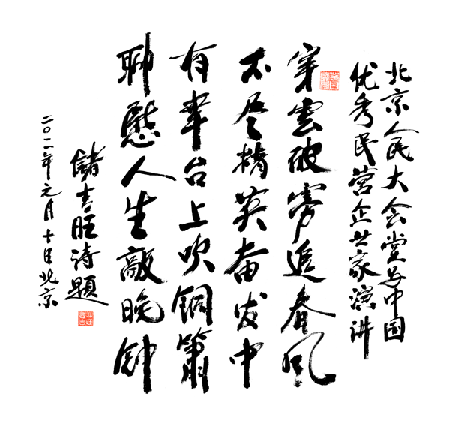 北京人民大会堂为中国
优秀民营企业家演讲
穿雲破雾追春风
不尽精英奋发中
有幸台上吹铜箫
聊慰人生敲晚钟
儲吉旺诗題
二〇一一年元月十日北京